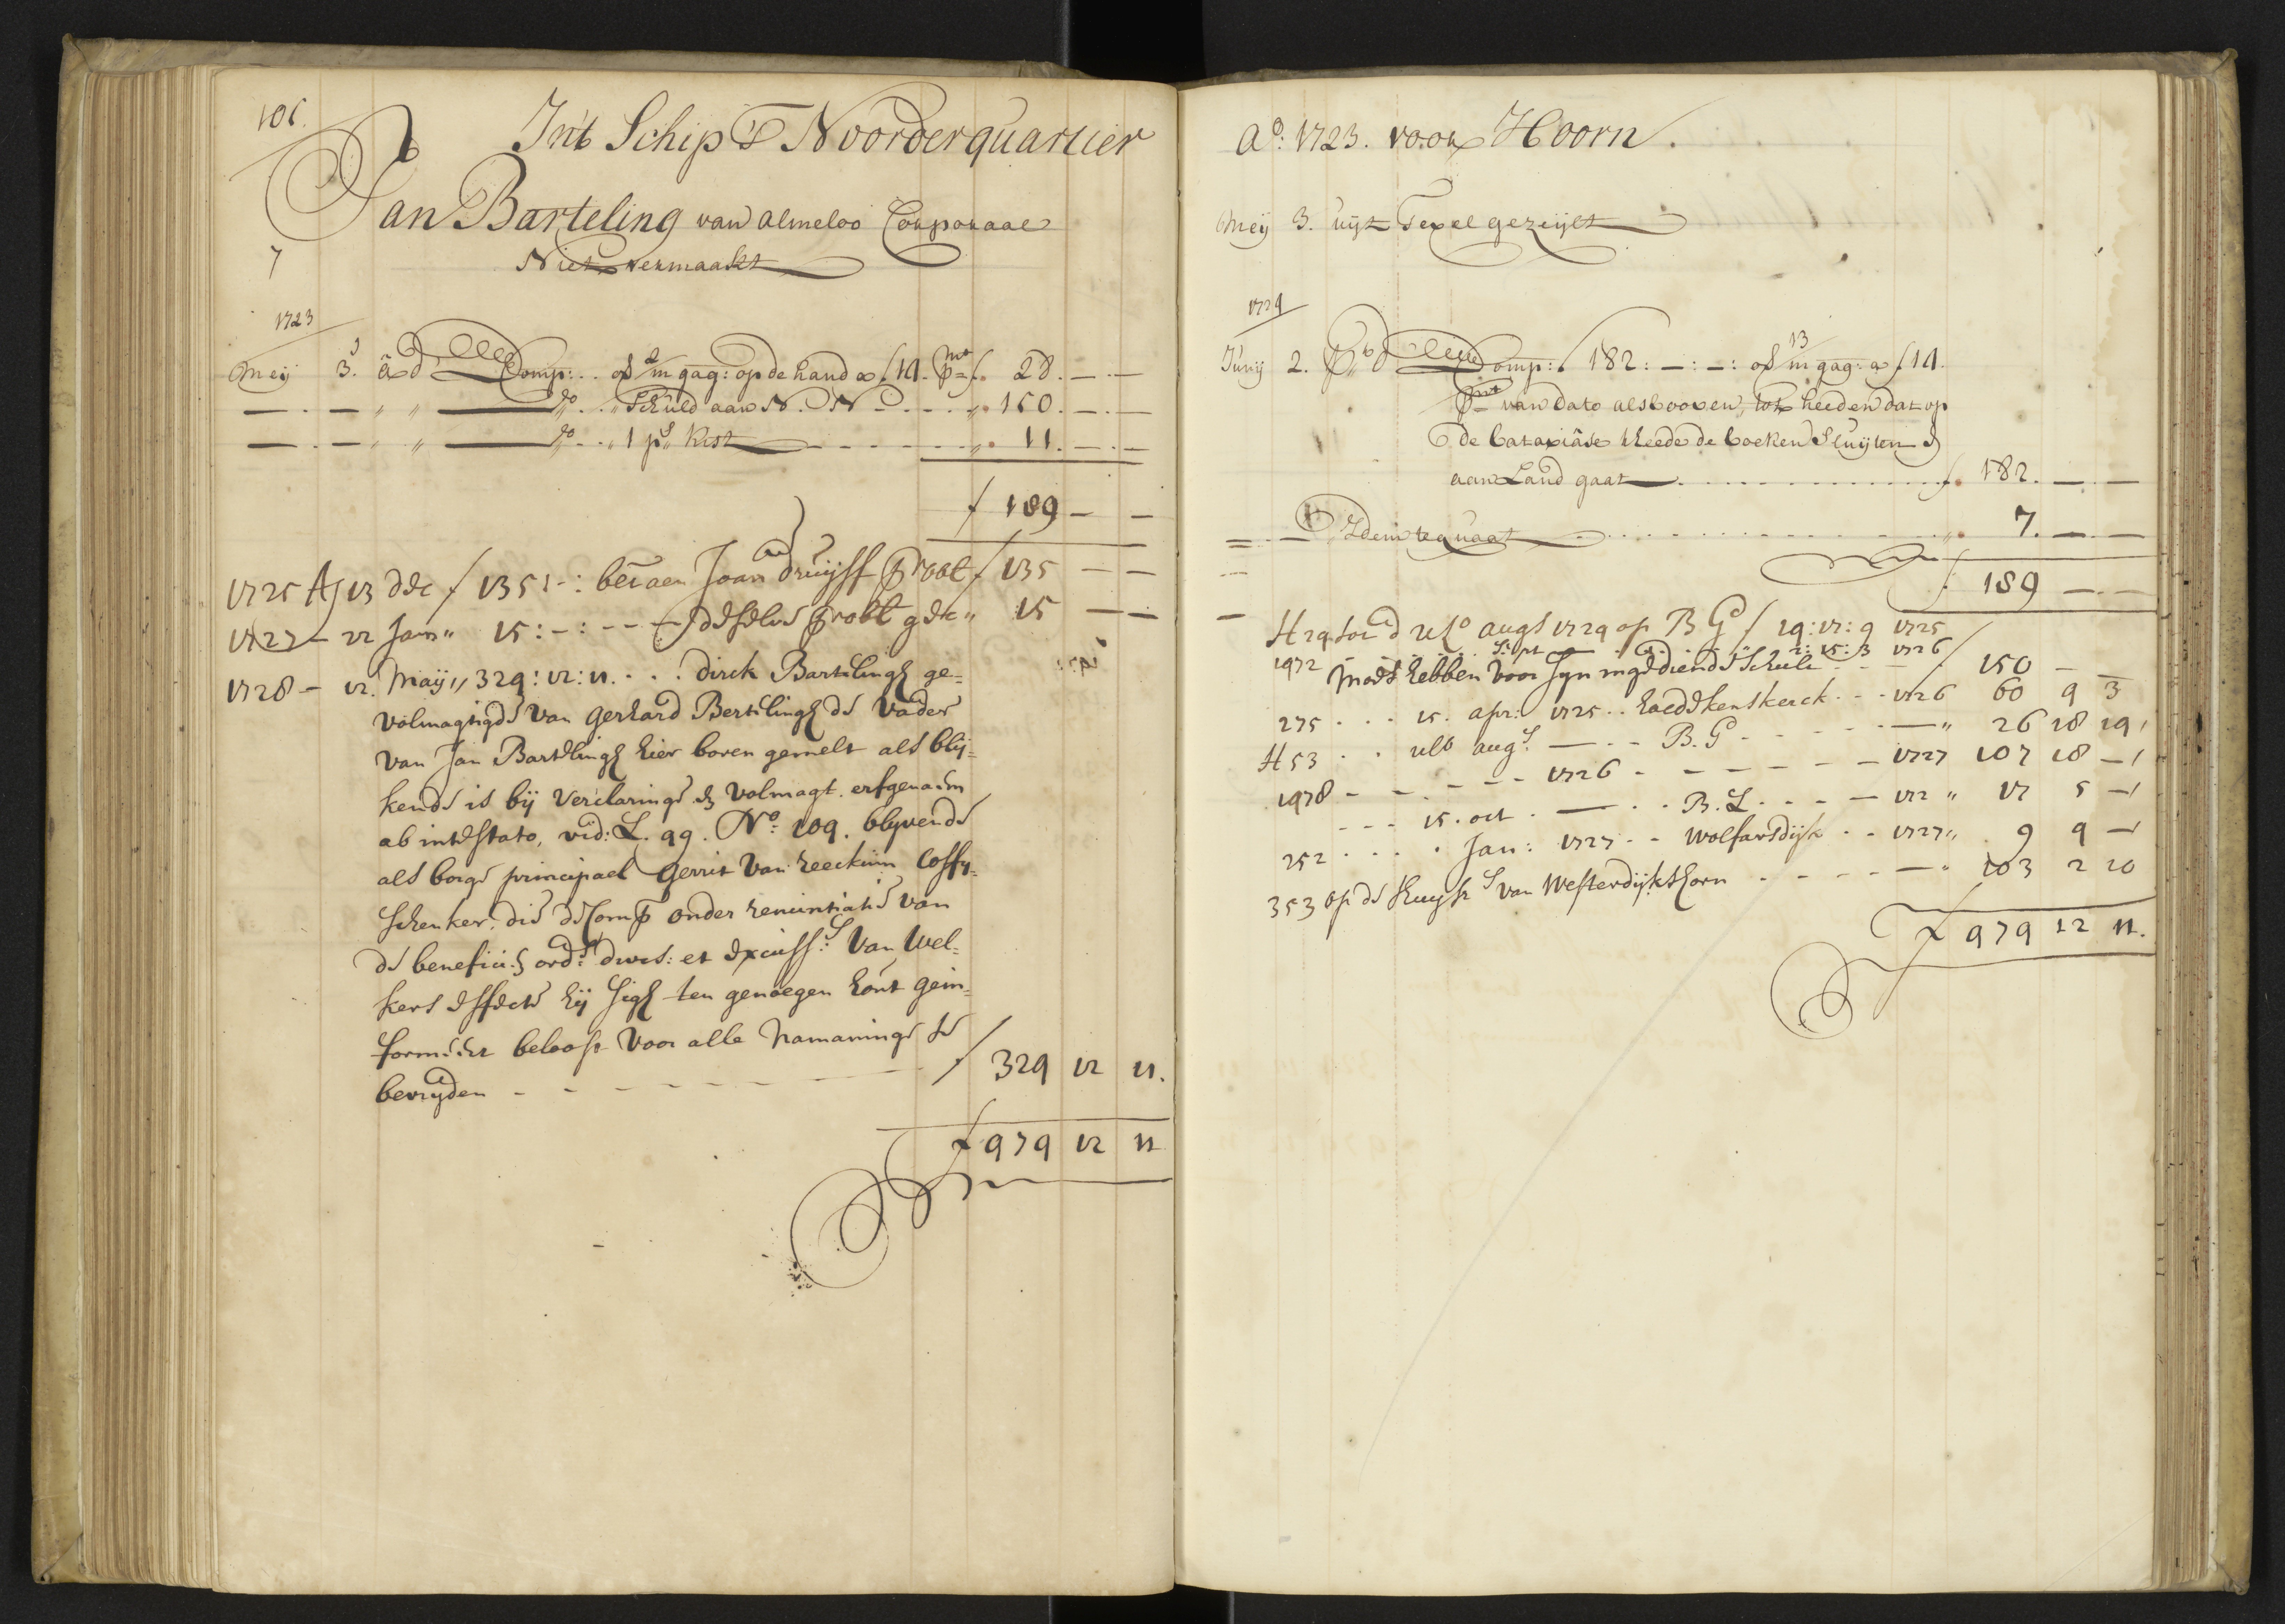 106.
Int Schip 't Noorderquartier
Jan Barteling van Almeloo Corporaal
7
Niet vermaakt
1723
Meij 3. ad Comp: .. of 2/m gag: op de hand a f 14. p mt f. 28. — . —
— . — " " — do .. " Schuld aan N. N . . . " 150. — . —
— . — " " — do .. " 1 ps kist — . . . " 11. — . —
f 189 — —
1725 13 dec f 135: - : betaen Joan druijff f 135 — —
1727 - 22 Jann " 15: - : - - - deselve " 15 — —
1728 - 12. Maij " 329: 12: 11. . . . dirck Bartelingh ge=
volmagtigde van Gerhard Bertelingh de vader
van Jan Bartelingh hier boven gemelt als blij=
kende is bij verclaringe & volmagt. erfgenaem
ab intestato, vid: L. 99. No: 109. blijvende
als borge principael Gerrit van Reeckum Coffij=
schenker, die de Comp onder renuntiatie van
de benefici: ord: divis: et excuss: van wel=
kers effecte hij sigh ten genoegen hout gein=
formeert belooft voor alle namaninge te
bevrijden - - - - - - - f 329 12 11.
f 979 12 11
Ao: 1723. voor Hoorn.
Meij 3. uijt Texel gezeijlt
1724
Junij 2. Comp: f 182: — : — : of 13/m gag: a f 14.
p mt van dato als booven, tot heeden dat op
de Bataviase Rheede de boeken Sluijten &
aan Land gaat . . . . . . f. 182. — . —
Idem te quaat . . . . . . " 7. — . —
f 189 — . —
H 29 ulto augs 1724 op B G f 19: 17: 9 1725
1972 . . . Sept . . G. . 2: 15: 3 1726
moet hebben voor sijn ingediende Schult . . f 150 —
275 . . . 15. apr: 1725 . . haeddkenskerck . . . 1726 60 9 3
H 53 . . ulto augs — . . B. G . . . — " 26 18 19
1978 - - . - - - 1726 - - - - - - 1727 107 18 —
- - - 15. oct . — . . B. L . . . — 172 " 17 5 —
252 . . . . Jan: 1727 . . Wolfarsdijk . . 1727 " 9 9 —
353 op de van Westerdijkshorn . . . . — " 103 2 10
f 979 12 11.